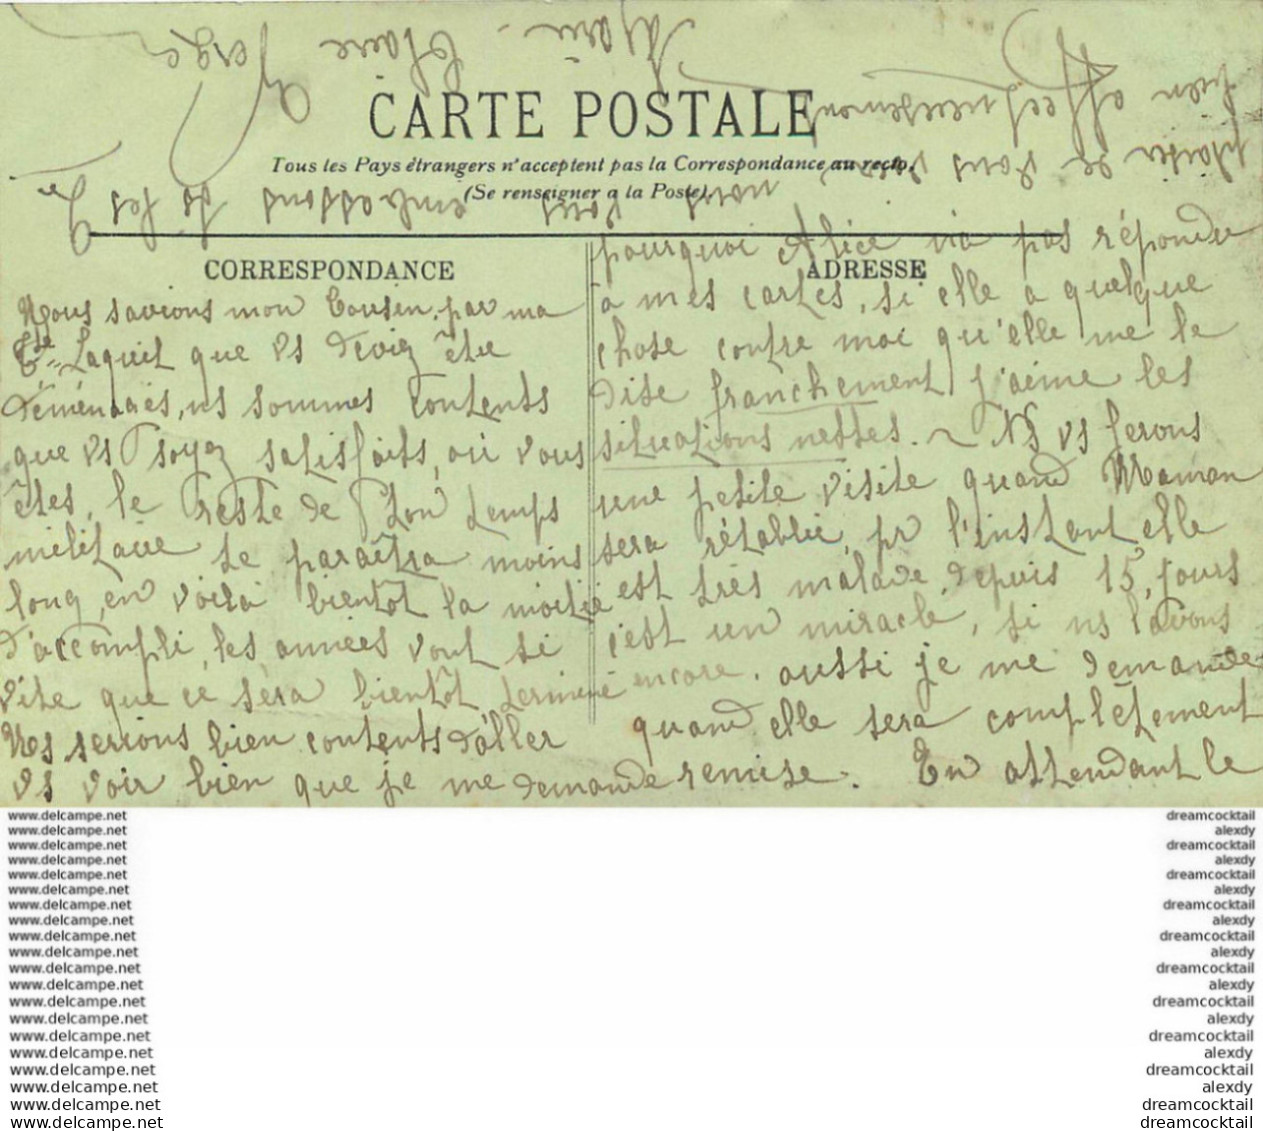 CARTE POSTALE
Tous les Pays étrangers n'acceptent pas la Correspondance au recto.
(Se renseigner a la Poste).
CORRESPONDANCE
Nous savions mon Cousin, par ma
Laquit que vs deviez être
déménagés, ns sommes contents
que vs soyez satisfaits, où vous
êtes, le reste de ton temps
militaire te paraîtra moins
long, en voilà bientôt la moitié
d'accompli, les années vont si
vite que ce sera bientôt terminé
Ns serions bien contents d'aller
vs voir bien que je me demande
ADRESSE
pourquoi Alice n'a pas répondu
à mes cartes, si elle a quelque
chose contre moi qu'elle me le
dise franchement, j'aime les
situations nettes. ~ Ns vs ferons
une petite visite quand Maman
sera rétablie, pr l'instant elle
est très malade, depuis 15 jours
c'est un miracle, si ns l'avons
encore. aussi je me demande
quand elle sera complètement
remise. En attendant le
plaisir de vous voir nous vous embrassons
bien affectueusement
Marie Claire
www.delcampe.net
www.delcampe.net
www.delcampe.net
www.delcampe.net
www.delcampe.net
www.delcampe.net
www.delcampe.net
www.delcampe.net
www.delcampe.net
www.delcampe.net
www.delcampe.net
www.delcampe.net
www.delcampe.net
www.delcampe.net
www.delcampe.net
www.delcampe.net
www.delcampe.net
www.delcampe.net
www.delcampe.net
www.delcampe.net
dreamcocktail
alexdy
dreamcocktail
alexdy
dreamcocktail
alexdy
dreamcocktail
alexdy
dreamcocktail
alexdy
dreamcocktail
alexdy
dreamcocktail
alexdy
dreamcocktail
alexdy
dreamcocktail
alexdy
dreamcocktail
dreamcocktail